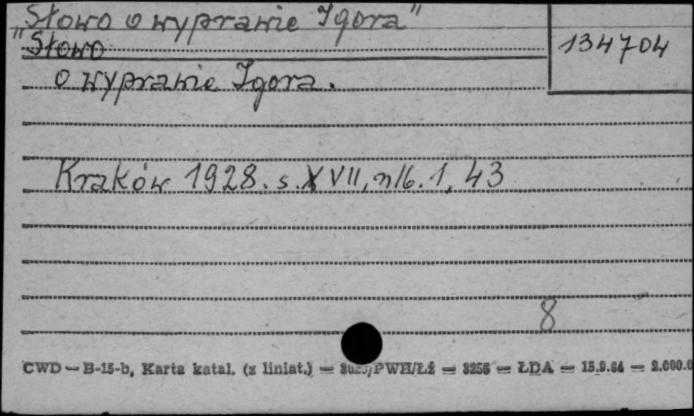 "Słowo o wyprawie Igora"
134704
Słowo
o wyprawie Igora.
Kraków 1928. s. XVII, nlb. 1, 43
8
CWD — B-15-b, Karta katal. (z liniat.) — /PWH/Łź — 3256 — ŁDA — 15.9.64 — 2.000.0